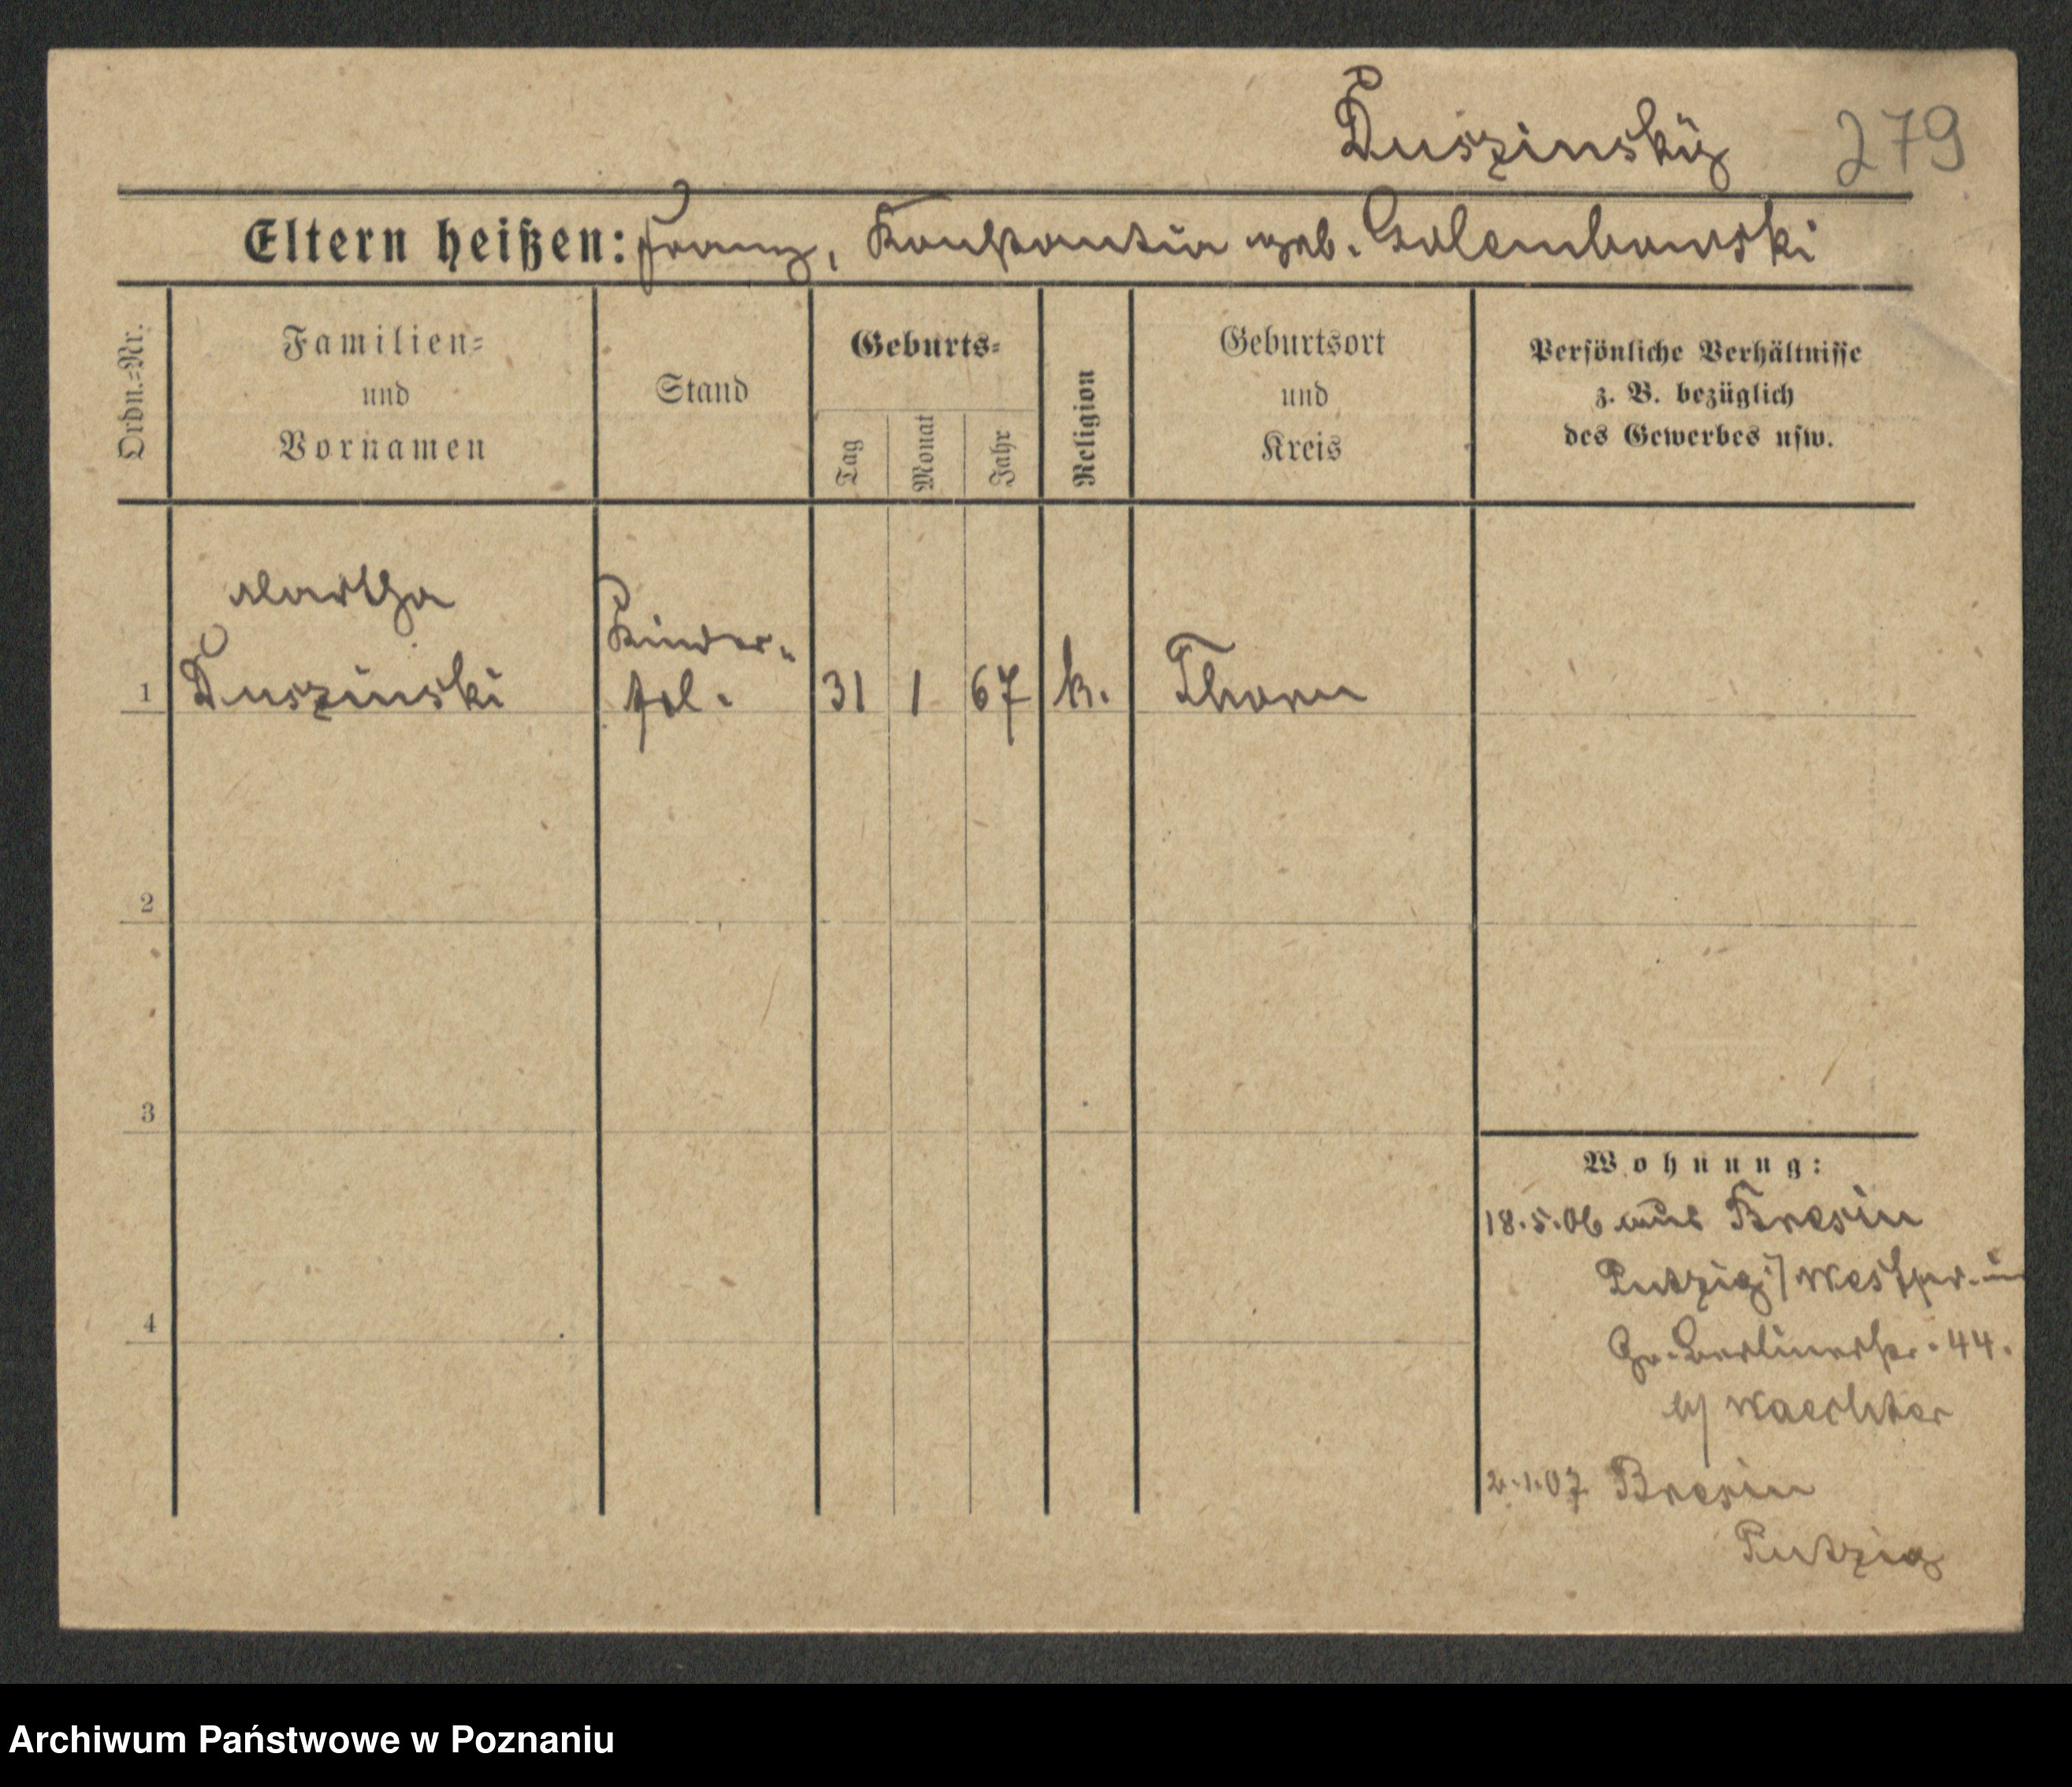 Duszinský 279
Eltern heißen: Franz, Konstantin geb. Golembowski
Ordn.=Nr.
Familien=
und
Vornamen
Stand
Geburts=
Tag
Monat
Jahr
Religion
Geburtsort
und
Kreis
Persönliche Verhältnisse
z. B. bezüglich
des Gewerbes usw.
Martha
Kinder-
1 Duszinski frl. 31 1 67 k. Thorn
2
3
4
Wohnung:
18.5.06 aus Bresin
Putzig i/Westpr. in
Gr. Berlinerstr. 44.
b/ Waechter
2.1.07 Bresin
Putzig
Archiwum Państwowe w Poznaniu